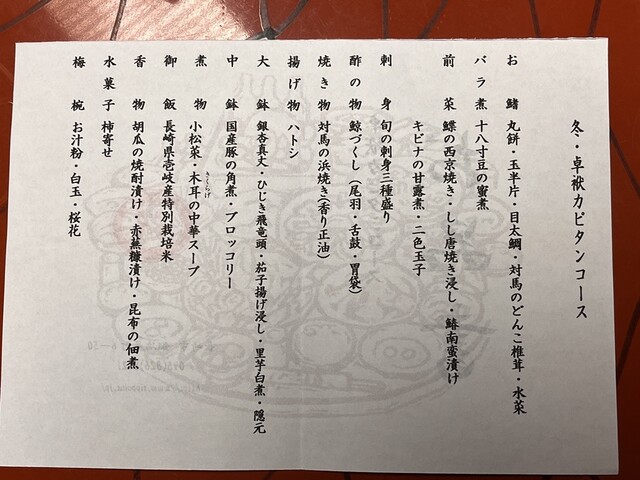 冬・卓袱カピタンコース
お鰭 丸餅・玉半片・目太鯛・対馬のどんこ椎茸・水菜
バラ煮 十八寸豆の蜜煮
前菜 鰈の西京焼き・しし唐焼き浸し・鰆南蛮漬け
キビナの甘露煮・二色玉子
刺身 旬の刺身三種盛り
酢の物 鯨づくし(尾羽・舌鼓・胃袋)
焼き物 対馬の浜焼き(香り正油)
揚げ物 ハトシ
大鉢 銀杏真丈・ひじき飛竜頭・茄子揚げ浸し・里芋白煮・隠元
中鉢 国産豚の角煮・ブロッコリー
煮物 小松菜・木耳の中華スープ
きくらげ
御飯 長崎県壱岐産特別栽培米
香物 胡瓜の焼酎漬け・赤蕪糠漬け・昆布の佃煮
水菓子 柿寄せ
梅椀 お汁粉・白玉・桜花